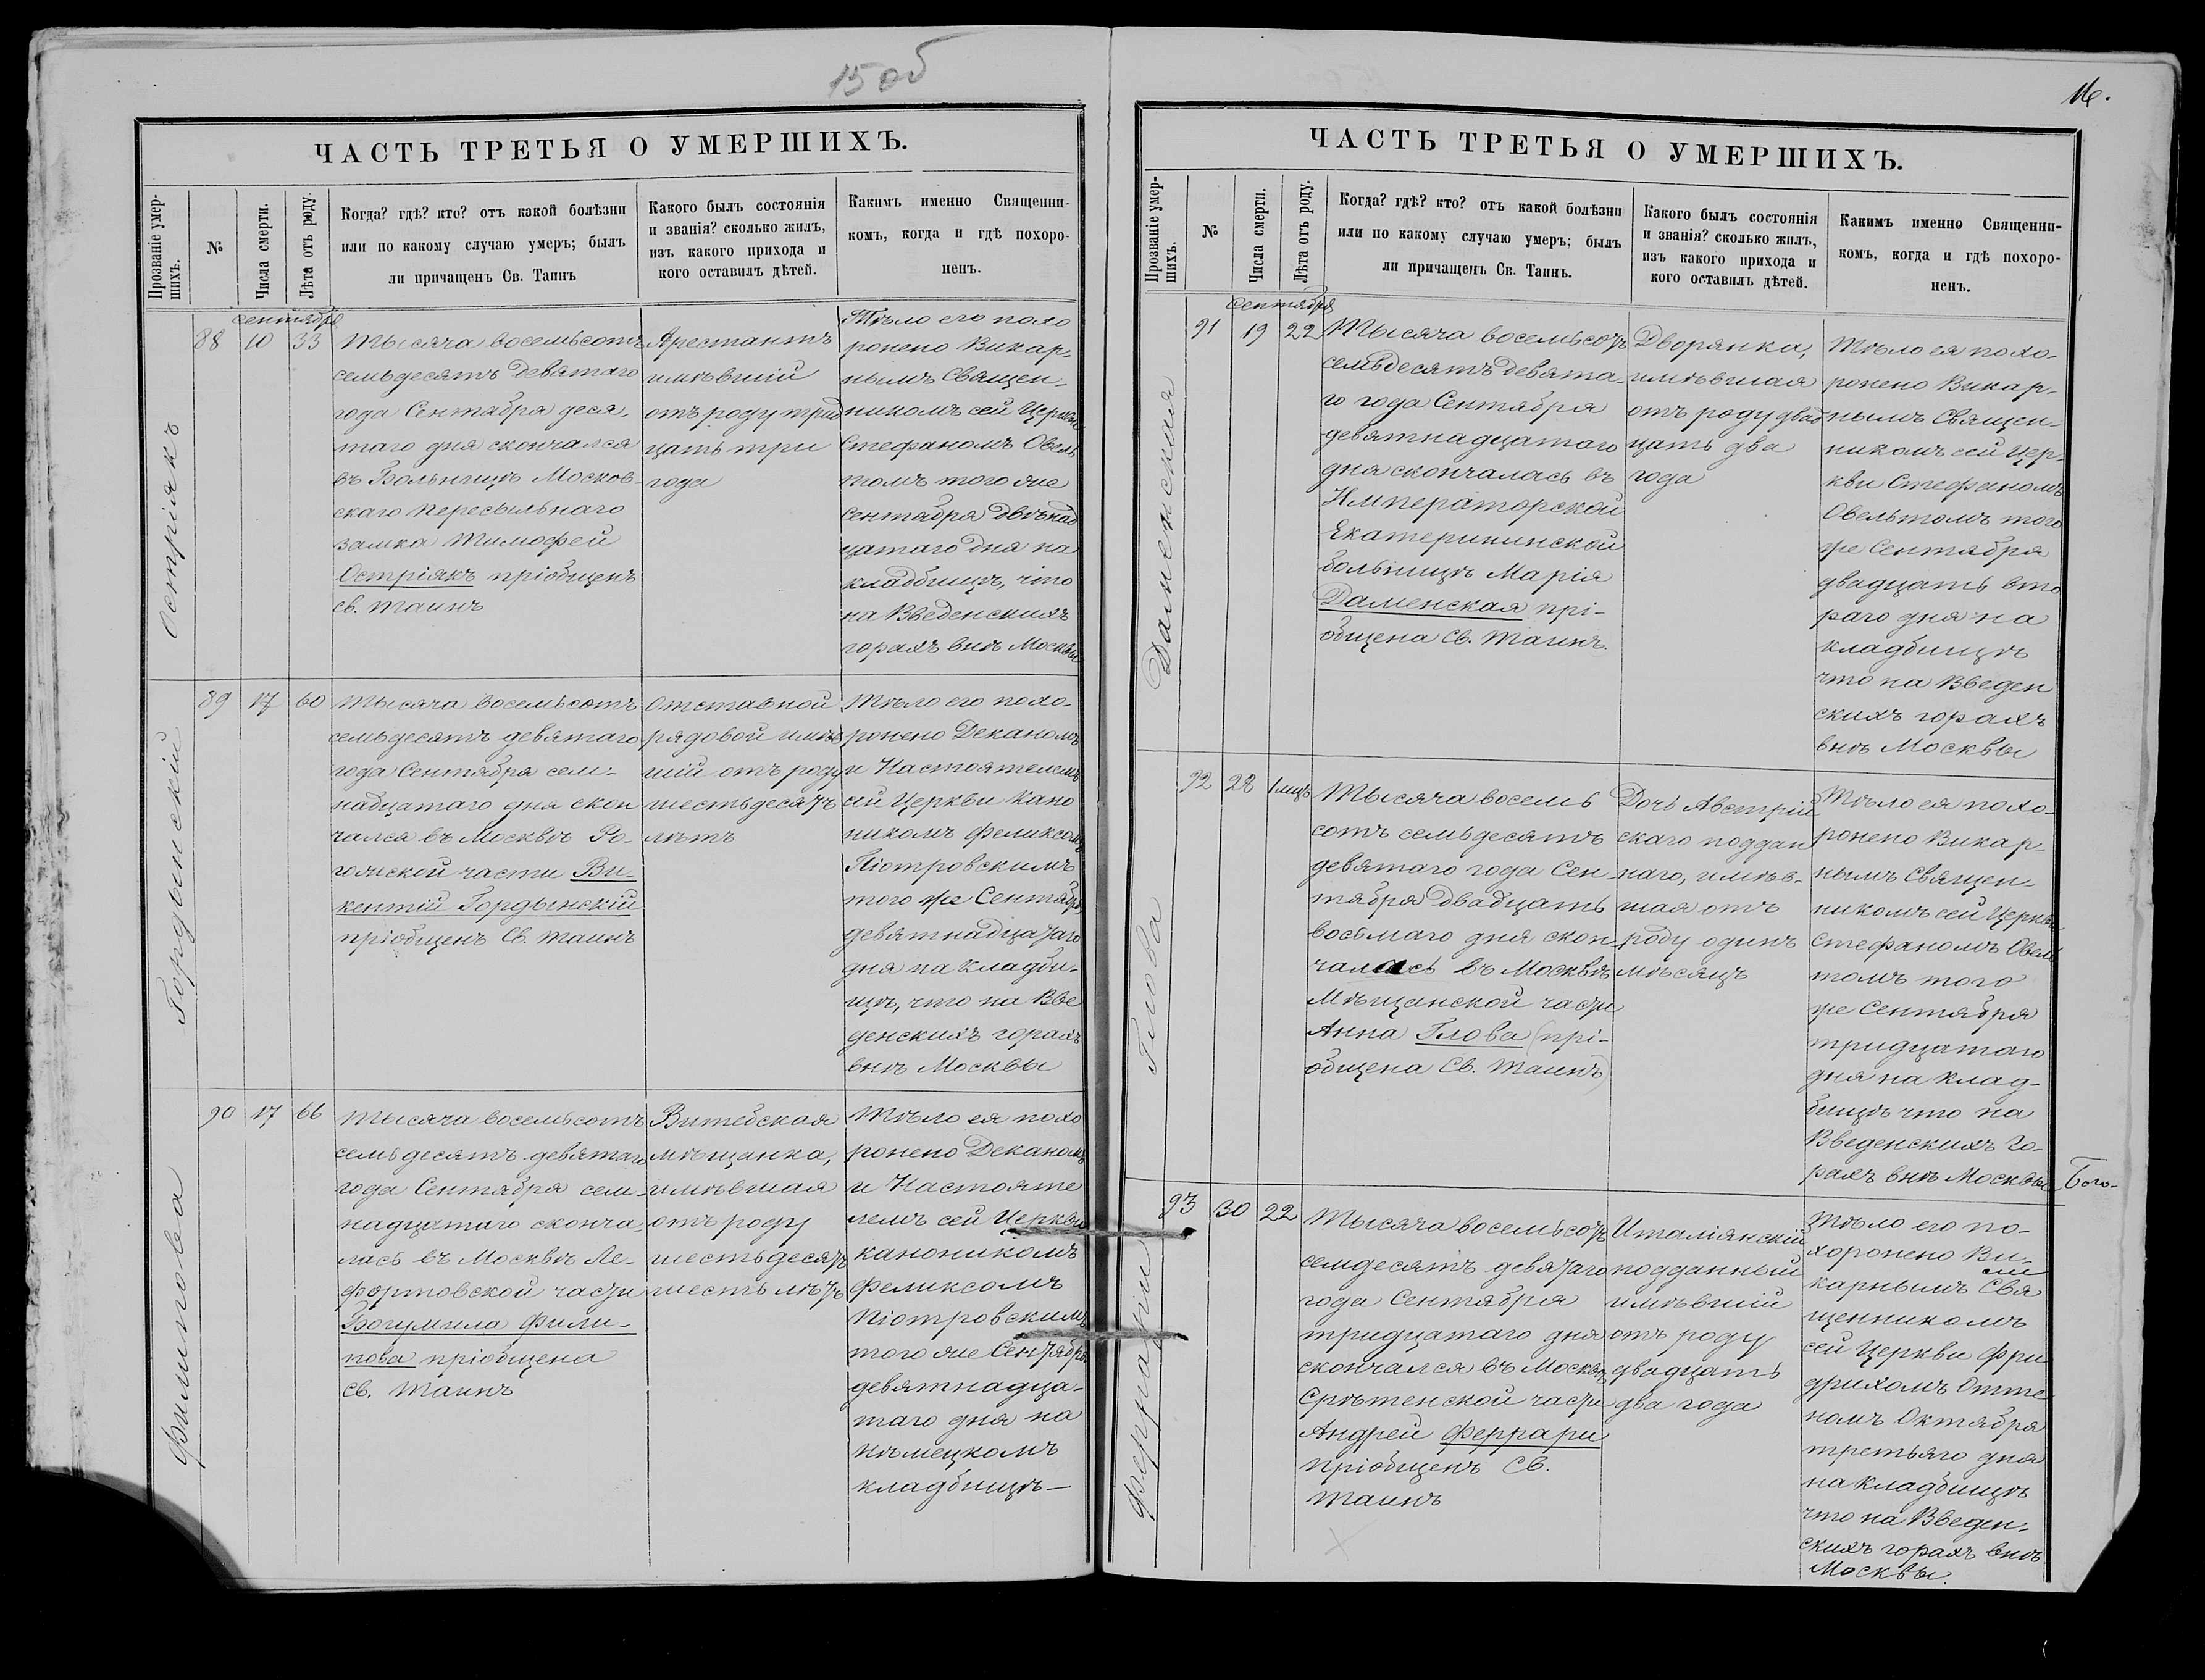 15 об
ЧАСТЬ ТРЕТЬЯ О УМЕРШИХЪ.
Прозваніе умер-
шихъ.
№
Числа смерти.
Лѣта отъ роду.
Когда? гдѣ? кто? отъ какой болѣзни
или по какому случаю умеръ; былъ
ли причащенъ Св. Таинъ
Какого былъ состоянія
и званія? сколько жилъ,
изъ какого прихода и
кого оставилъ дѣтей.
Какимъ именно Священни-
комъ, когда и гдѣ похоро-
ненъ.
Остріякъ
Сентября
88 10 33
Тысяча восемьсотъ
семьдесятъ девятаго
года Сентября деся-
таго дня скончался
въ Больницѣ Москов-
скаго пересыльнаго
замка Тимофей
Остріякъ пріобщенъ
св. таинъ
Арестантъ
имѣвшій
отъ роду трид
цать три
года
Тѣло его похо
ронено Викар-
нымъ Священ-
никомъ сей Церкви
Стефаномъ Овель
томъ того же
Сентября двѣнад
цатаго дня на
кладбищѣ, что
на Введенскихъ
горахъ внѣ Москвы
Гордынскій
89 17 60
Тысяча восемьсотъ
семьдесятъ девятаго
года Сентября сем-
надцатаго дня скон
чался въ Москвѣ Ро-
гожской части Ви-
кентій Гордынскій
пріобщенъ Св. таинъ
Отставной
рядовой имѣв
шій отъ роду
шестьдесятъ
лѣтъ
Тѣло его похо-
ронено Деканомъ
и Настоятелемъ
сей Церкви Кано
никомъ Феликсомъ
Піотровскимъ
того же Сентября
девятнадцатаго
дня на кладби-
щѣ, что на Вве
денскихъ горахъ
внѣ Москвы
Филипова
90 17 66
Тысяча восемьсотъ
семьдесятъ девятаго
года Сентября сем-
надцатаго сконча-
лась въ Москвѣ Ле-
фортовской части
Богумила Фили-
пова пріобщена
св. Таинъ
Витебская
мѣщанка,
имѣвшая
отъ роду
шестьдесятъ
шесть лѣтъ
Тѣло ея похо
ронено Деканомъ
и Настояте
лемъ сей Церкви
каноникомъ
Феликсомъ
Піотровскимъ
того же Сентября
девятнадца-
таго дня на
нѣмецкомъ
кладбищѣ—
16.
ЧАСТЬ ТРЕТЬЯ О УМЕРШИХЪ.
Прозваніе умер-
шихъ.
№
Числа смерти.
Лѣта отъ роду.
Когда? гдѣ? кто? отъ какой болѣзни
или по какому случаю умеръ; былъ
ли причащенъ Св. Таинъ.
Какого былъ состоянія
и званія? сколько жилъ,
изъ какого прихода и
кого оставилъ дѣтей.
Какимъ именно Священни-
комъ, когда и гдѣ похоро-
ненъ.
Даменская
Сентября
91 19 22
Тысяча восемьсотъ
семьдесятъ девята-
го года Сентября
девятнадцатаго
дня скончалась въ
Императорской
Екатерининской
больницѣ Марія
Даменская прі-
общена св. таинъ.
Дворянка,
имѣвшая
отъ роду двад
цать два
года
Тѣло ея похо-
ронено Викар-
нымъ Священ-
никомъ сей Цер-
кви Стефаномъ
Овельтомъ того
же Сентября
двадцать вто
раго дня на
кладбищѣ
что на Введен
скихъ горахъ
внѣ Москвы
Глова
92 28 1 мцъ
Тысяча восемь
сотъ семьдесятъ
девятаго года Сен-
тября двадцать
восьмаго дня скон-
чалась въ Москвѣ
Мѣщанской части
Анна Глова (прі-
общена Св. таинъ)
Дочь Австрій
скаго поддан
наго, имѣв-
шая отъ
роду одинъ
мѣсяцъ
Тѣло ея похо-
ронено Викар-
нымъ Священ-
никомъ сей Церкви
Стефаномъ Овель
томъ того
же Сентября
тридцатаго
дня на клад-
бищѣ что на
Введенскихъ го-
рахъ внѣ Москвы
Бого-
Феррари
93 30 22
Тысяча восемьсотъ
семдесятъ девятаго
года Сентября
тридцатаго дня
скончался въ Москвѣ
Срѣтенской части
Андрей Феррари
пріобщенъ Св.
таинъ
Италіянскій
подданный
имѣвшій
отъ роду
двадцать
два года
Тѣло его по-
хоронено Ви-
карнымъ Свя
щенникомъ
сей Церкви Фри
дрихомъ Отте
номъ Октября
третьяго дня
на кладбищѣ
что на Введен-
скихъ горахъ внѣ
Москвы.